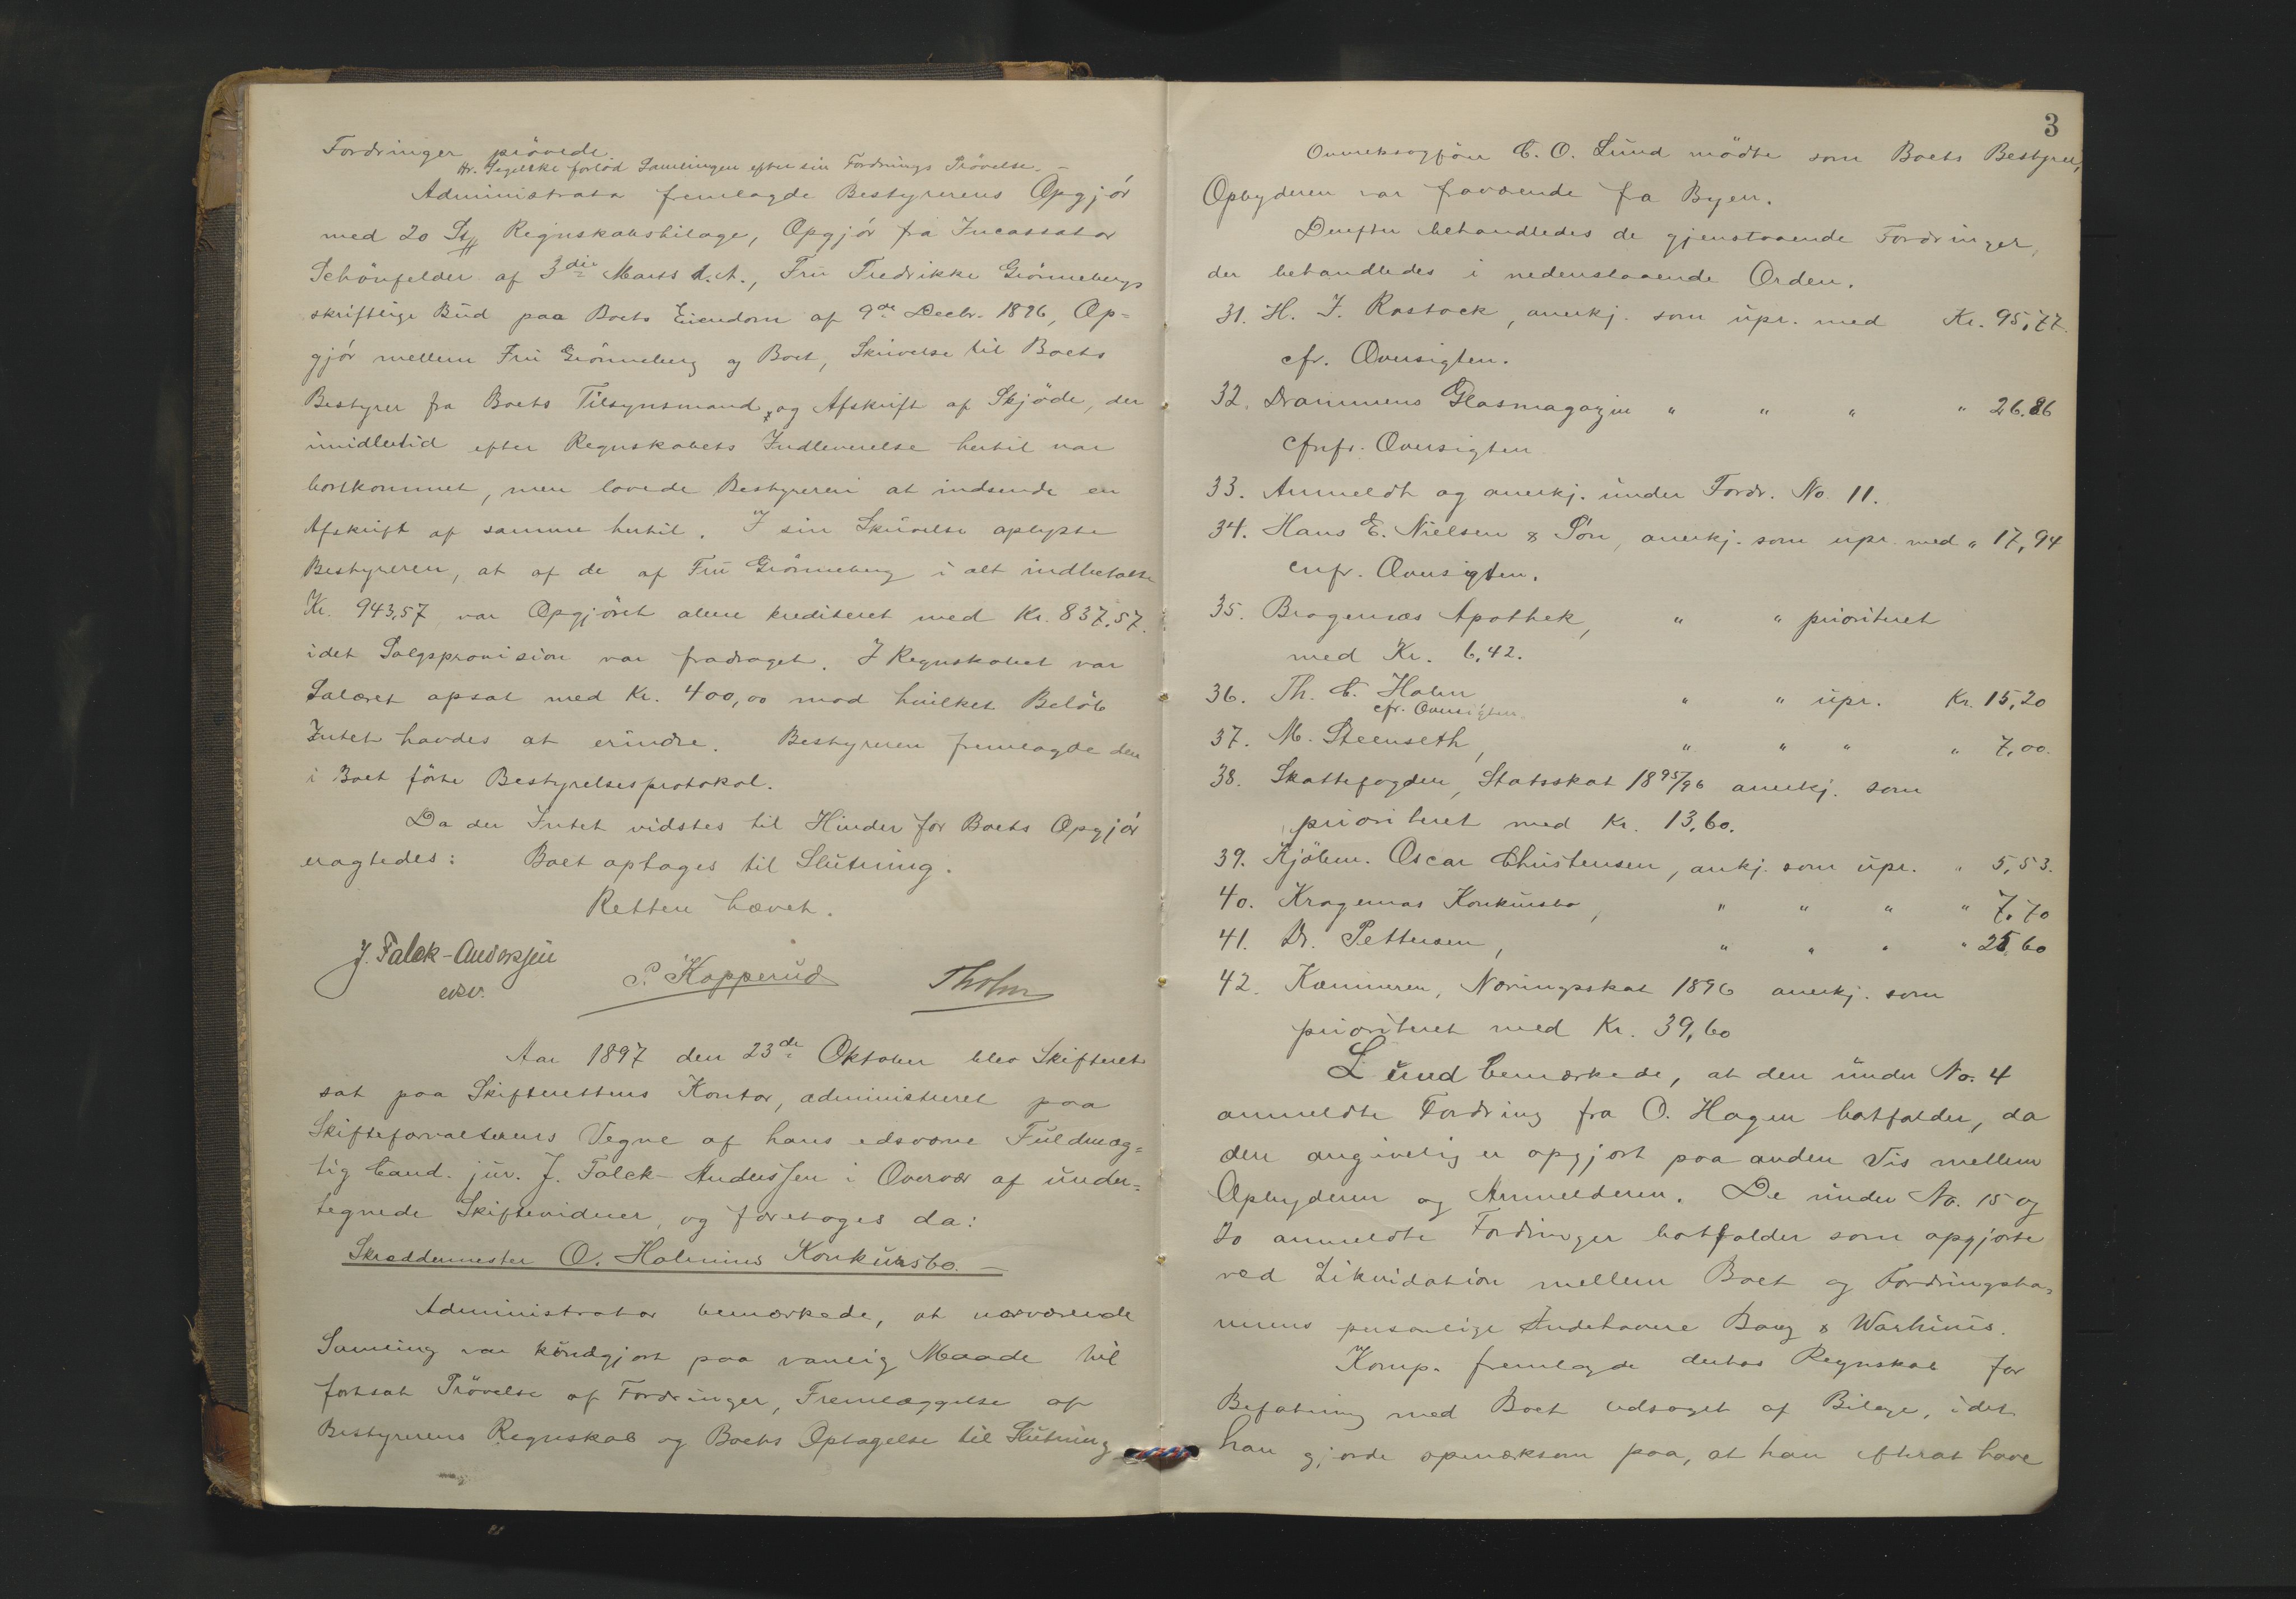 Fordringer prövede.
Hr. Segelcke forlod Samlingen efter sin Fordrings Prövelse. –
Administrator fremlagde Bestyrerens Opgjör
med 20 St. Regnskabsbilage, Opgjör fra Incassator
Schönfelder af 3die Marts d. A., Fru Fredrikke Grönnebergs
skriftlige Bud paa Boets Eiendom af 9de Decbr. 1896, Op=
gjör mellem Fru Grönneberg og Boet, Skrivelse til Boets
Bestyrer fra Boets Tilsynsmand, og Afskrift af Skjöde, der
imidlertid efter Regnskabets Indleverelse hertil var
bortkommet, men lovede Bestyreren at indsende en
Afskrift af samme hertil. I sin Skrivelse oplyste
Bestyreren, at af de af Fru Grönneberg i alt indbetalte
Kr. 943,57 var Opgjöret alene krediteret med Kr. 837,57.
idet Salgsprovision var fradraget. I Regnskabet var
Salæret opsat med Kr. 400,00 mod hvilket Belöb
Intet havdes at erindre. Bestyreren fremlagde den
i Boet förte Bestyrelsesprotokol.
Da der Intet vidstes til Hinder for Boets Opgjör
eragtedes: Boet optages til Slutning.
Retten hævet.
J. Falck-Anderssen
edsv.
P. Kopperud
Tholm
Aar 1897 den 23de Oktober blev Skifteret
sat paa Skifterettens Kontor, administreret paa
Skifteforvalterens Vegne af hans edsvorne Fuldmæg=
tig Cand. jur. J. Falck-Anderssen i Overvær af under=
tegnede Skiftevidner, og foretoges da:
Skræddermester O. Holmins Konkursbo. –
Administrator bemærkede, at nærværende
Samling var kundgjort paa vanlig Maade til
fortsat Prövelse af Fordringer, Fremlæggelse af
Bestyrerens Regnskab og Boets Optagelse til Slutning
3
C. O. Lund mödte som Boets Bestyrer,
Opbyderen var fraværende fra Byen.
Derefter behandledes de gjenstaaende Fordringer,
der behandledes i nedenstaaende Orden.
31. H. J. Rastock, anerkj. som upr. med Kr. 95,77.
cfr. Oversigten.
32. Drammens Glasmagazin " " " " 26.86
cfnfr. Oversigten
33. Anmeldt og anerkj. under Fordr. No. 11.
34. Hans E. Nielsen & Sön, anerkj. som upr. med " 17,94
cnfr. Oversigten.
35. Bragernæs Apothek, " " prioriteret
med Kr. 6,42.
36. Th. C. Holm " " upr. Kr. 15,20
cfr. Oversigten.
37. M. Steenseth, " " " " 7,00.
38. Skattefogden, Statsskat 1895/96 anerkj. som
prioriteret med Kr. 13,60.
39. Kjöbm. Oscar Christensen, ankj. som upr. " 5,53.
40. Kragernas Konkursbo, " " " " 7,70
41. Dr. Pettersen, " " " " 25 60
42. Kæmneren, Næringsskat 1896 anerkj. som
prioriteret med Kr. 39,60
Lund bemærkede, at den under No. 4
anmeldte Fordring fra O. Hagen bortfalder, da
den angivelig er opgjort paa anden Vis mellem
Opbyderen og Anmelderen. De under No. 15 og
20 anmeldte Fordringer bortfalder som opgjorte
ved Likvidation mellem Boet og Fordringsha=
vernes personlige Indehavere Bang &
Komp. fremlagde derhos Regnskab for
Befatning med Boet ledsaget af Bilage, idet
han gjorde opmærksom paa, at han efterat have